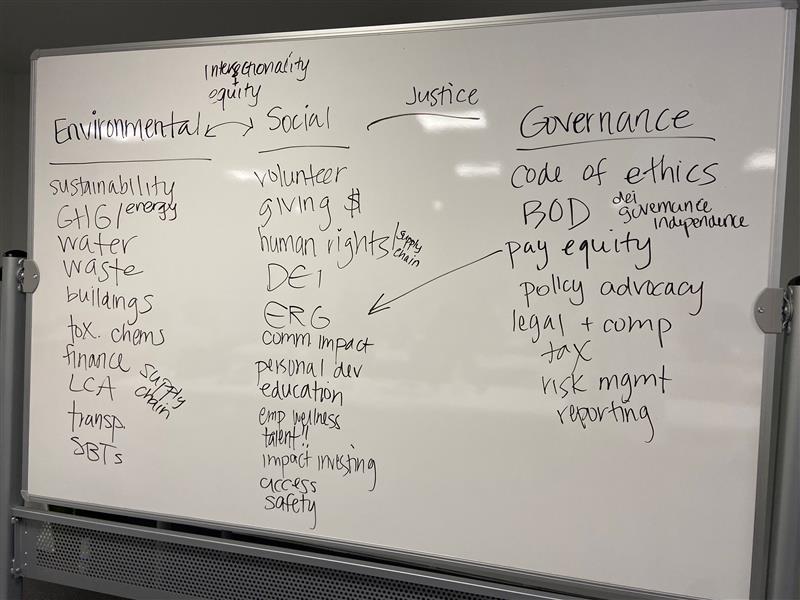 Intersectionality
+
equity
Justice
Environmental
sustainability
GHG/energy
water
waste
buildings
tox. chems
finance
LCA
supply
chain
transp.
SBTs
Social
volunteer
giving $
human rights/supply
chain
DEI
ERG
comm impact
personal dev
education
emp wellness
talent!!
impact investing
access
safety
Governance
code of ethics
BOD
dei
governance
independence
pay equity
policy advocacy
legal + comp
tax
risk mgmt
reporting